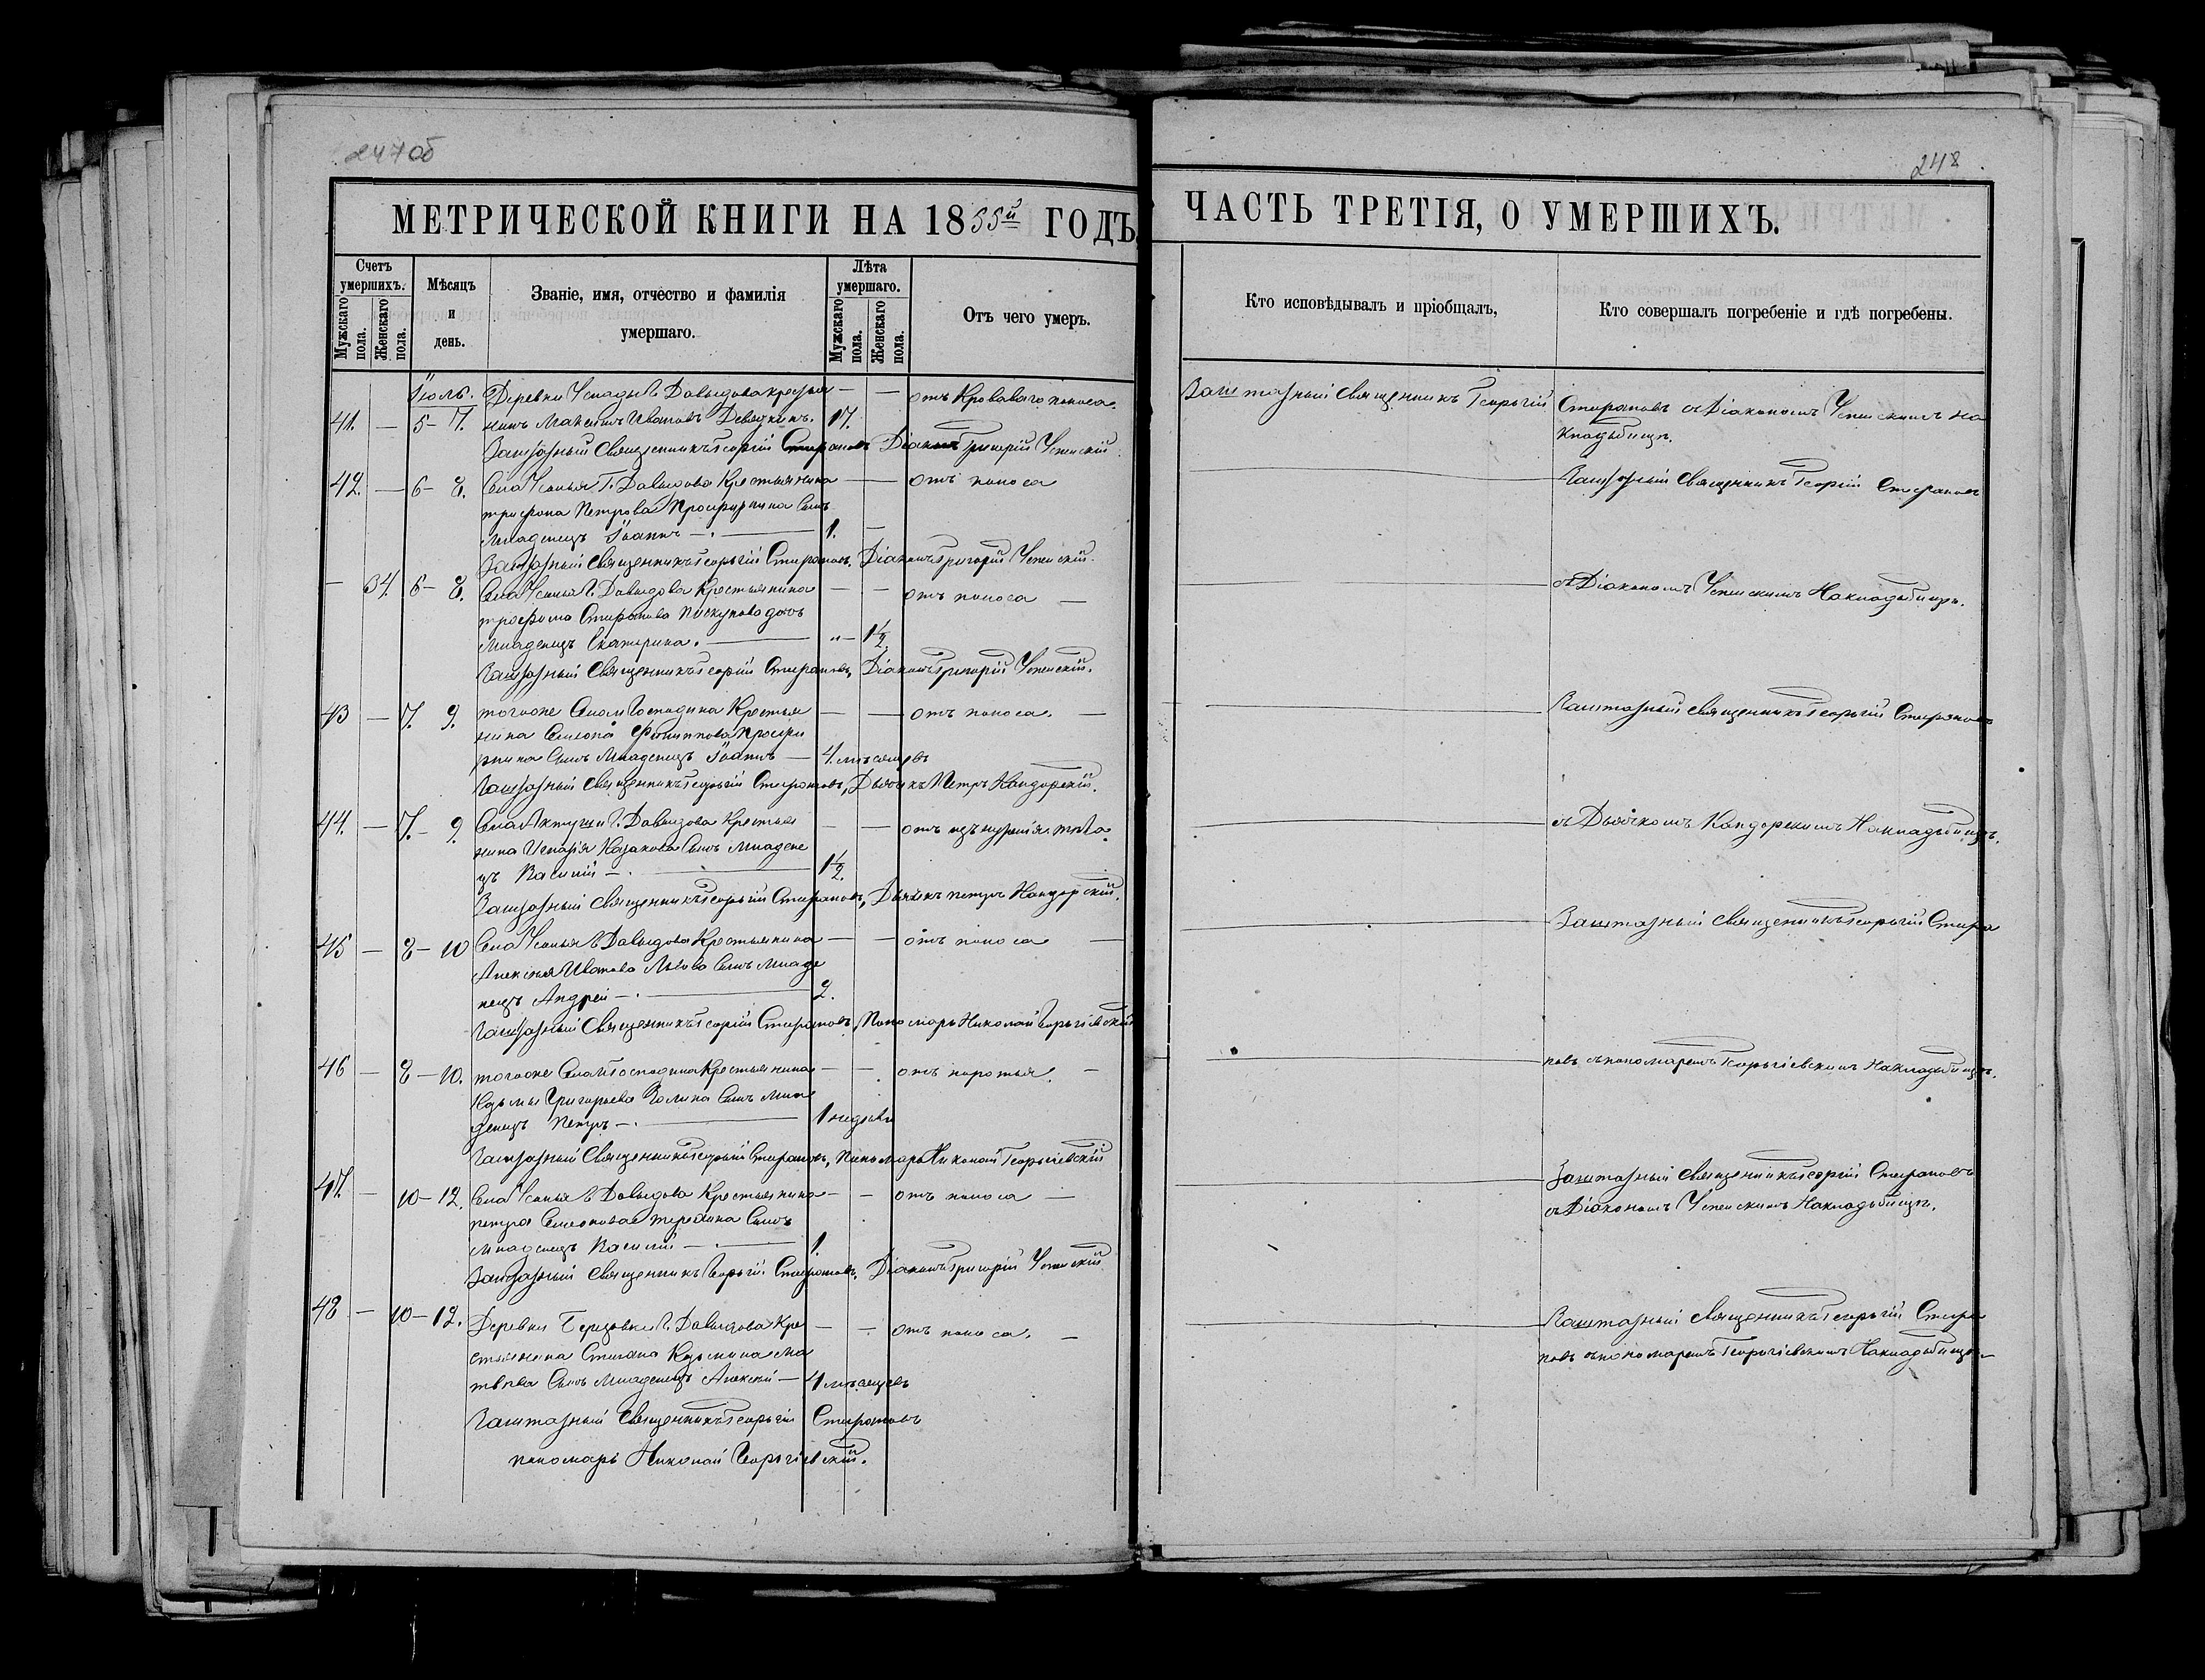 247об
МЕТРИЧЕСКОЙ КНИГИ НА 1855й ГОДЪ,
Счетъ умершихъ.
Мужскаго пола.
Женскаго пола.
Мѣсяцъ и день.
Званіе, имя, отчество и фамилія умершаго.
Лѣта умершаго.
Мужскаго пола.
Женскаго пола.
Отъ чего умеръ.
Іюль.
41. — 5 – 7. Деревни Г. Давыдова крестья — — отъ Кроваваго поноса.
нинъ Максимъ Ивановъ 17.
Заштатный Священникъ Георгій Стефановъ Діаконъ Григорій Успенскій.
42. — 6 – 8. Села Усанья Г. Давыдова Крестьянина — — отъ поноса
трифона Петрова сынъ
Младенецъ Іоаннъ — . — 1. —
Заштатный Священникъ Георгій Стефановъ. Діаконъ Григорій Успенскій.
— 34. 6 – 8. Села Усанья Г. Давыдова Крестьянина — — отъ поноса —
трофима Стефанова Пискунова дочь
Младенецъ Екатерина. — „ — 1½
Заштатный Священникъ Георгій Стефановъ, Діаконъ Григорій Успенскій.
43 — 7. 9. тогоже Села и Господина Крестья — — отъ поноса. —
нина Семена Филиппова
сынъ Младенецъ Іоаннъ — 4. мѣсяцевъ
Заштатный Священникъ Георгій Стефановъ, Дьячекъ Петръ Кандорскій.
44. — 7. – 9. Села Г. Давыдова Крестья — —
нина Игнатія Казакова Сынъ Младене
цъ Василій — . — 1½.
Заштатный Священникъ Георгій Стефановъ, Дьячекъ петръ Кандорскій.
45 — 8 – 10 Села Усанья Г. Давыдова Крестьянина — — отъ поноса —
Алексѣя Иванова Львова Сынъ Младе
нецъ Андрей — . — 2.
Заштатный Священникъ Георгій Стефановъ, Пономарь Николай Георгіевскій
46 — 8 – 10. тогоже Села и Господина Крестьянина — —
Козьмы Григорьева Сынъ Мла
денецъ Петръ — . — 1 недѣли
Заштатный Священникъ Георгій Стефановъ, Пономарь Николай Георгіевскій
47. — 10 – 12. Села Усанья Г. Давыдова Крестьянина — — отъ поноса —
петра Семенова Сынъ
Младенецъ Василій — . — 1.
Заштатный Священникъ Георгій Стефановъ. Діаконъ Григорій Успенскій
48 — 10 – 12. Деревни Березовки Г. Давыдова Кре — — отъ поноса. —
стьянина Степана Козьмина Ма
твѣева Сынъ Младенецъ Алексѣй — 1 мѣсяцевъ
Заштатный Священникъ Георгій Стефановъ
пономарь Николай Георгіевскій.
248
ЧАСТЬ ТРЕТІЯ, О УМЕРШИХЪ.
Кто исповѣдывалъ и пріобщалъ,
Кто совершалъ погребеніе и гдѣ погребены.
Заштатный Священникъ Георгій Стефановъ съ Діакономъ Успенскимъ на
Кладбищѣ.
Заштатный Священникъ Георгій Стефановъ
съ Діакономъ Успенскимъ На кладбищѣ.
Заштатный Священникъ Георгій Стефановъ
съ Дьячкомъ Кандорскимъ На кладбищѣ.
Заштатный Священникъ Георгій Стефа
новъ съ пономаремъ Георгіевскимъ На кладбищѣ.
Заштатный Священникъ Георгій Стефановъ
съ Діакономъ Успенскимъ На кладбищѣ.
Заштатный Священникъ Георгій Стефа
новъ съ пономаремъ Георгіевскимъ На кладбищѣ.